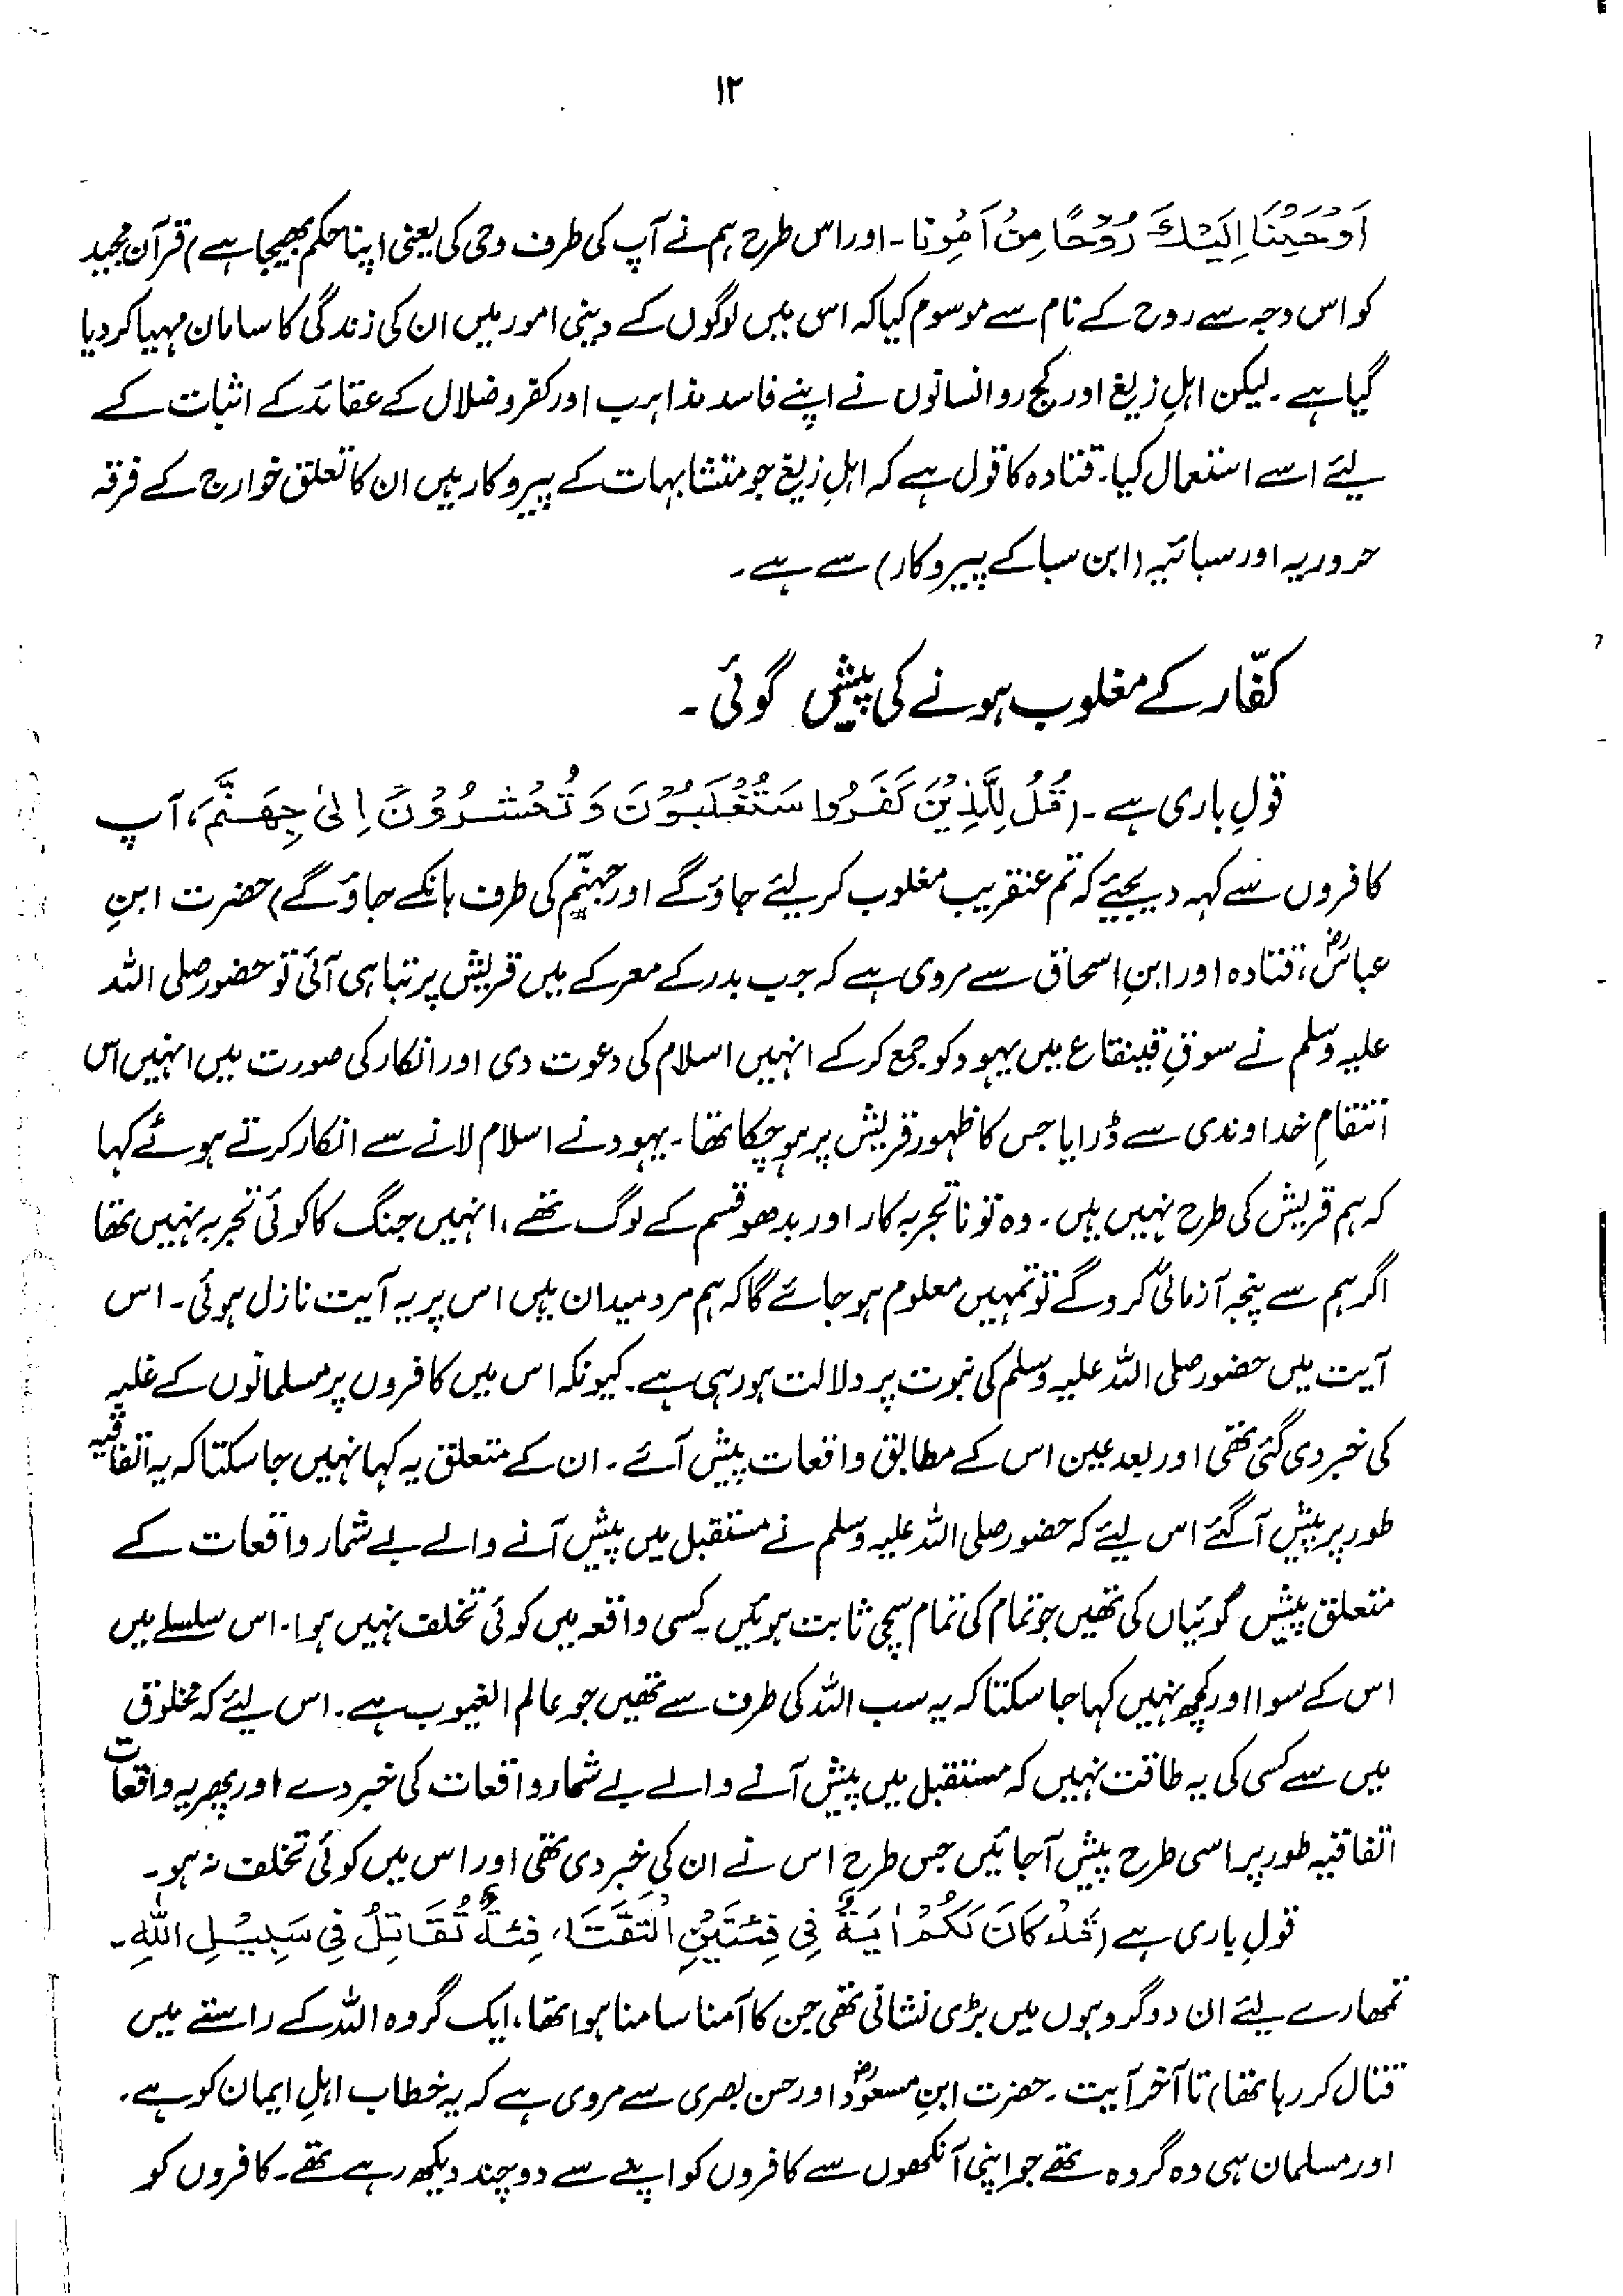 ۱۲
اَوْحَيْنَا اِلَيْكَ رُوْحًا مِنْ اَمْرِنَا۔ اور اس طرح ہم نے آپ کی طرف وحی کی یعنی اپنا حکم بھیجا ہے) قرآن مجید
کو اس وجہ سے روح کے نام سے موسوم کیا کہ اس میں لوگوں کے دینی امور میں ان کی زندگی کا سامان مہیا کر دیا
گیا ہے۔ لیکن اہلِ زیغ اور کج رو انسانوں نے اپنے فاسد مذاہب اور کفر و ضلال کے عقائد کے اثبات کے
لیئے اسے استعمال کیا۔ قتادہ کا قول ہے کہ اہلِ زیغ جو متشابہات کے پیروکار ہیں ان کا تعلق خوارج کے فرقہ
حروریہ اور سبائیہ (ابن سبا کے پیروکار) سے ہے۔
کفّار کے مغلوب ہونے کی پیش گوئی۔
قولِ باری ہے۔ (قُلْ لِلَّذِيْنَ كَفَرُوا سَتُغْلَبُوْنَ وَتُحْشَرُوْنَ اِلىٰ جِهَنَّمَ، آپ
کافروں سے کہہ دیجیئے کہ تم عنقریب مغلوب کر لیئے جاؤ گے اور جہنّم کی طرف ہانکے جاؤ گے) حضرت ابنِ
عباسؓ، قتادہ اور ابنِ اسحاق سے مروی ہے کہ جب بدر کے معرکے میں قریش پر تباہی آئی تو حضور صلی اللہ
علیہ وسلم نے سوقِ قینقاع میں یہود کو جمع کر کے انہیں اسلام کی دعوت دی اور انکار کی صورت میں انہیں اس
انتقامِ خداوندی سے ڈرایا جس کا ظہور قریش پر ہو چکا تھا۔ یہود نے اسلام لانے سے انکار کرتے ہوئے کہا
کہ ہم قریش کی طرح نہیں ہیں۔ وہ تو ناتجربہ کار اور بدھو قسم کے لوگ تھے، انہیں جنگ کا کوئی تجربہ نہیں تھا
اگر ہم سے پنجہ آزمائی کرو گے تو تمہیں معلوم ہو جائے گا کہ ہم مرد میدان ہیں اس پر یہ آیت نازل ہوئی۔ اس
آیت میں حضور صلی اللہ علیہ وسلم کی نبوت پر دلالت ہو رہی ہے۔ کیونکہ اس میں کافروں پر مسلمانوں کے غلبہ
کی خبر دی گئی تھی اور بعد عین اس کے مطابق واقعات پیش آئے۔ ان کے متعلق یہ کہا نہیں جا سکتا کہ یہ اتفاقیہ
طور پر پیش آ گئے اس لیئے کہ حضور صلی اللہ علیہ وسلم نے مستقبل میں پیش آنے والے بے شمار واقعات کے
متعلق پیش گوئیاں کی تھیں جو تمام کی تمام سچی ثابت ہوئیں۔ کسی واقعہ میں کوئی تخلف نہیں ہوا۔ اس سلسلے میں
اس کے سوا اور کچھ نہیں کہا جا سکتا کہ یہ سب اللہ کی طرف سے تھیں جو عالم الغیوب ہے۔ اس لیئے کہ مخلوق
میں سے کسی کی یہ طاقت نہیں کہ مستقبل میں پیش آنے والے بے شمار واقعات کی خبر دے اور پھر یہ واقعات
اتفاقیہ طور پر اسی طرح پیش آجائیں جس طرح اس نے ان کی خبر دی تھی اور اس میں کوئی تخلف نہ ہو۔
قولِ باری ہے (قَدْ كَانَ لَكُمْ اٰيَةٌ فِي فِئَتَيْنِ الْتَقَتَا، فِئَةٌ تُقَاتِلُ فِي سَبِيْلِ اللهِ۔
تمھارے لیئے ان دو گروہوں میں بڑی نشانی تھی جن کا آمنا سامنا ہوا تھا، ایک گروہ اللہ کے راستے میں
قتال کر رہا تھا) تا آخر آیت۔ حضرت ابنِ مسعودؓ اور حسن بصری سے مروی ہے کہ یہ خطاب اہلِ ایمان کو ہے۔
اور مسلمان ہی وہ گروہ تھے جو اپنی آنکھوں سے کافروں کو اپنے سے دو چند دیکھ رہے تھے۔ کافروں کو